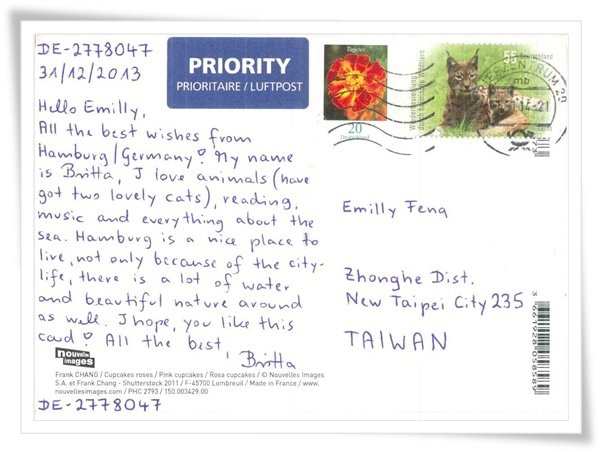 DE-2778047
31/12/2013
Hello Emilly,
All the best wishes from
Hamburg/Germany! My name
is Britta, I love animals (have
got two lovely cats), reading,
music and everything about the
sea. Hamburg is a nice place to
live, not only because of the city-
life, there is a lot of water
and beautiful nature around
as well. I hope, you like this
card! All the best,
Britta
nouvelles
images
Frank CHANG / Cupcakes roses / Pink cupcakes / Rosa cupcakes / © Nouvelles Images
S.A. et Frank Chang - Shutterstock 2011 / F-45700 Lombreuil / Made in France / www.
nouvellesimages.com / PHC 2793 / 150.003429.00
DE-2778047
PRIORITY
PRIORITAIRE / LUFTPOST
Tagetes
20
Deutschland
55 Deutschland
Emilly Feng
Zhonghe Dist.
New Taipei City 235
TAIWAN